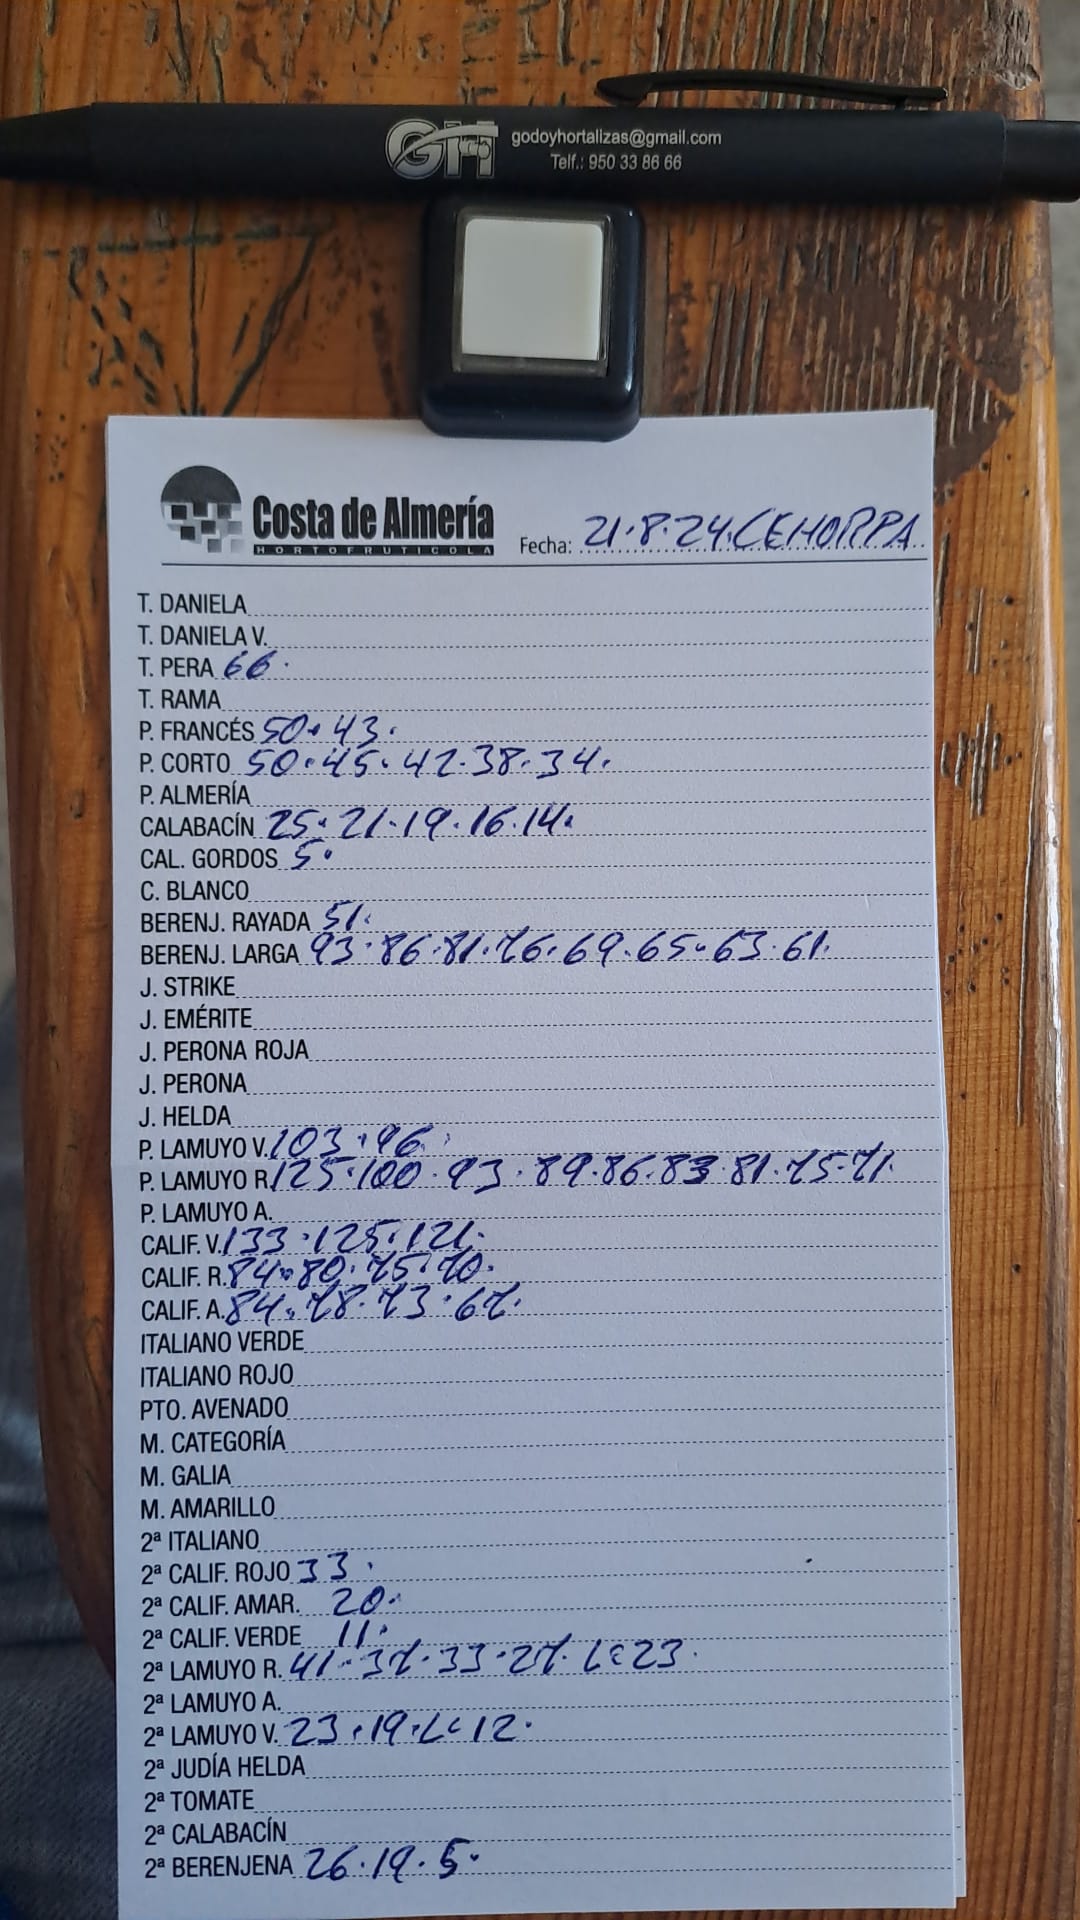 GH godoyhortalizas@gmail.com
Telf.: 950 33 86 66
Costa de Almería
HORTOFRUTICOLA
Fecha: 21.8.24.CEHORPA
T. DANIELA
T. DANIELA V.
T. PERA 66.
T. RAMA
P. FRANCÉS 50.43.
P. CORTO 50.45.42.38.34.
P. ALMERÍA
CALABACÍN 25.21.19.16.14.
CAL. GORDOS 5.
C. BLANCO
BERENJ. RAYADA 51.
BERENJ. LARGA 93.86.81.76.69.65.63.61.
J. STRIKE
J. EMÉRITE
J. PERONA ROJA
J. PERONA
J. HELDA
P. LAMUYO V. 103.96.
P. LAMUYO R. 125.100.93.89.86.83.81.75.71.
P. LAMUYO A.
CALIF. V. 133.125.121.
CALIF. R. 84.80.75.70.
CALIF. A. 84.78.73.67.
ITALIANO VERDE
ITALIANO ROJO
PTO. AVENADO
M. CATEGORÍA
M. GALIA
M. AMARILLO
2ª ITALIANO
2ª CALIF. ROJO 33.
2ª CALIF. AMAR. 20.
2ª CALIF. VERDE 11.
2ª LAMUYO R. 41.37.33.27. 23.
2ª LAMUYO A.
2ª LAMUYO V. 23.19. 12.
2ª JUDÍA HELDA
2ª TOMATE
2ª CALABACÍN
2ª BERENJENA 26.19.5.